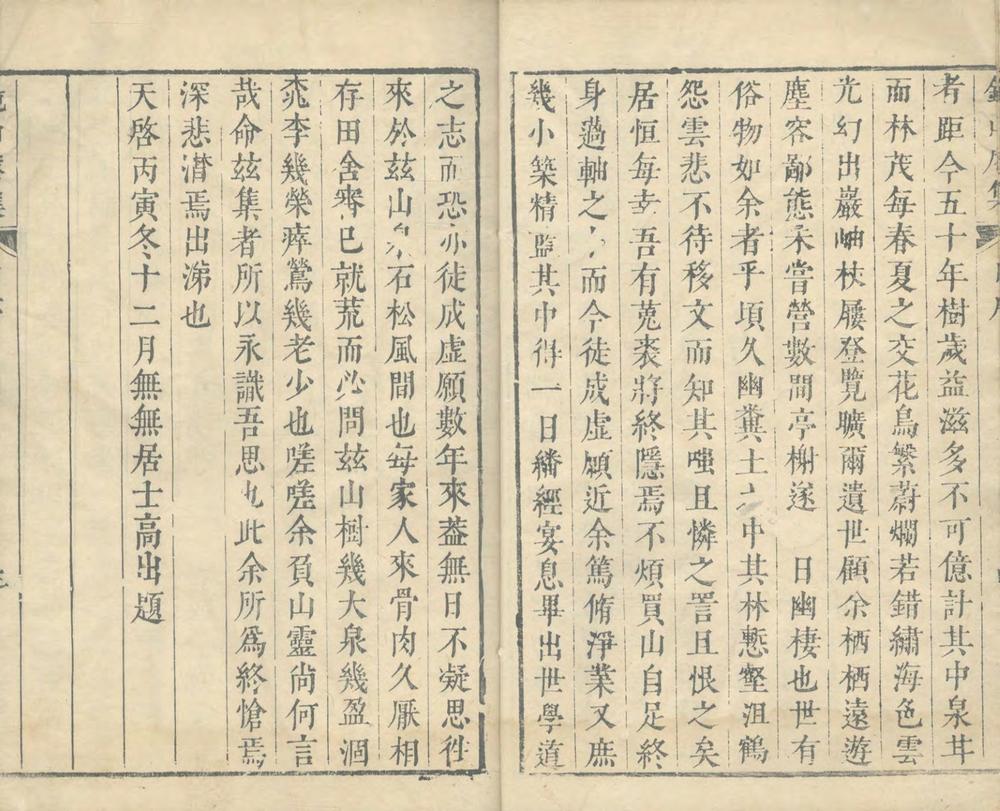 者距今五十年樹歲益滋多不可億計其中泉甘
而林茂每春夏之交花鳥繁蔚爛若錯繡海色雲
光幻出巖岫杖屨登覽曠爾遺世顧余栖栖遠遊
塵容鄙態未嘗營數間亭榭遂 日幽棲也世有
俗物如余者乎頃久幽糞土之中其林慙壑沮鶴
怨雲悲不待移文而知其嗤且憐之詈且恨之矣
居恒每幸吾有菟裘將終隱焉不煩買山自足終
身薖軸之 而今徒成虛願近余篤脩淨業又庶
幾小築精藍其中得一日繙經宴息畢出世學道
之志而恐亦徒成虛願數年來葢無日不凝思徃
來於玆山泉石松風間也每家人來骨肉久厭相
存田舍畬已就荒而必問玆山樹幾大泉幾盈涸
桃李幾榮瘁鶯幾老少也嗟嗟余負山靈尚何言
哉命玆集者所以永識吾思也此余所爲終愴焉
深悲潸焉出涕也
天啓丙寅冬十二月無無居士高出題